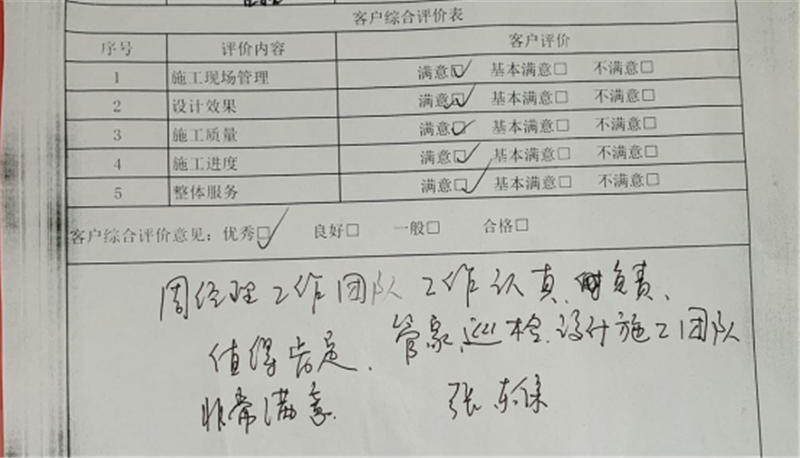 客户综合评价表
序号 评价内容 客户评价
1 施工现场管理 满意☑ 基本满意□ 不满意□
2 设计效果 满意☑ 基本满意□ 不满意□
3 施工质量 满意☑ 基本满意□ 不满意□
4 施工进度 满意☑ 基本满意□ 不满意□
5 整体服务 满意☑ 基本满意□ 不满意□
客户综合评价意见：优秀☑ 良好□ 一般□ 合格□
周经理工作团队工作认真、负责、
值得肯定、管家、巡检、设计施工团队
非常满意 张